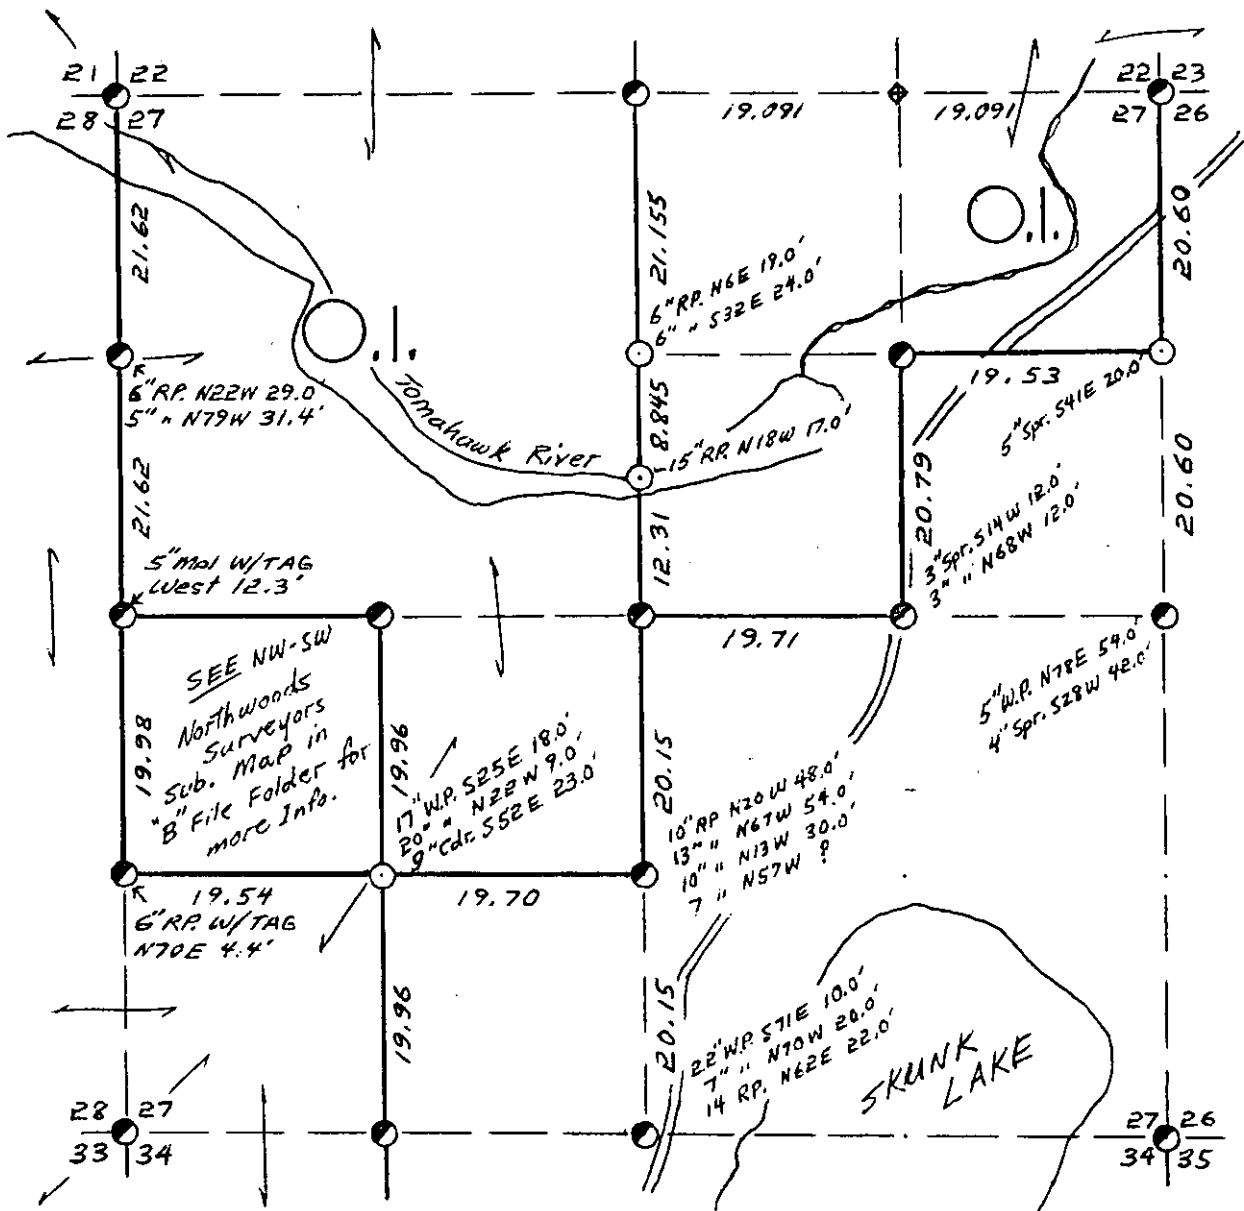 21 22
28 27
19.091
19.091
22 23
27 26
21.62
21.155
20.60
O.I.
6" RP. N6E 19.0'
6" " S32E 24.0'
O.I.
6" RP. N22W 29.0'
5" " N79W 31.4'
Tomahawk River
8.845
15" RP. N18W 17.0'
19.53
5" Spr. S41E 20.0'
21.62
12.31
20.79
20.60
3" Spr. S14W 12.0'
3" " N68W 12.0'
5" Mal W/TAG
West 12.3'
19.71
SEE NW-SW
Northwoods
Surveyors
Sub. Map in
"B" File Folder for
more Info.
5" W.P. N78E 54.0'
4" Spr. S28W 42.0'
19.98
19.96
17" W.P. S25E 18.0'
20" " N22W 9.0'
9" Cdr. S52E 23.0'
20.15
10" RP N20W 48.0'
13" " N67W 54.0'
10" " N13W 30.0'
7 " N57W ?
19.54
19.70
6" RP. W/TAG
N70E 4.4'
19.96
20.15
22" W.P. S71E 10.0'
7" " N70W 20.0'
14 RP. N62E 22.0'
SKUNK
LAKE
28 27
33 34
27 26
34 35